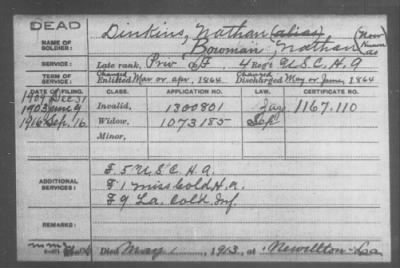 DEAD
NAME OF SOLDIER: Dinkins, Nathan (alias) (Now known as
Bowman, Nathan
SERVICE: Late rank, Priv Co F, 4 Reg't U S C. H. A
TERM OF SERVICE: Changed Enlisted Mar or apr, 1864 Changed Discharged May or June, 1864
DATE OF FILING. CLASS. APPLICATION NO. LAW. CERTIFICATE NO.
Dec 31
1903 June 9 Invalid, 1300801 1167.110
1916 Sep. 16 Widow, 1073185 Sep
Minor,
ADDITIONAL SERVICES: F. 5 U S C. H. A.
F 1 Miss Cold H. A.
F 9 La. Cold. Inf
REMARKS:
Died May 1, 1913, at Newellton - La